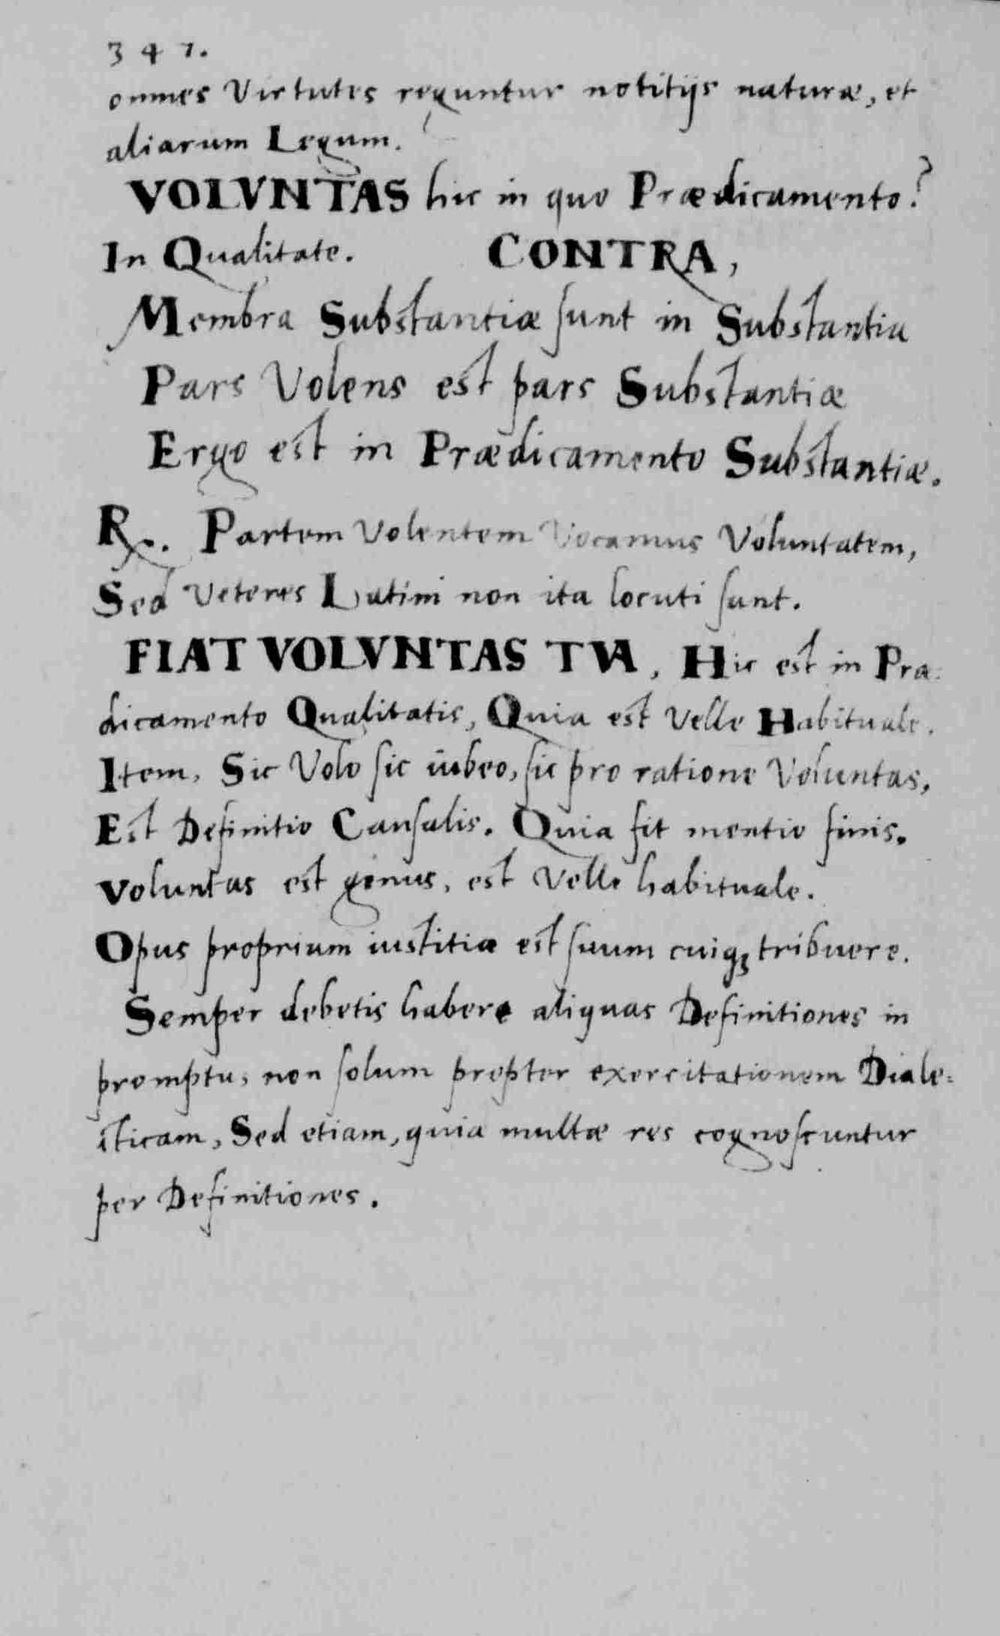 347.
omnes Virtutes reguntur notitijs naturæ, et
aliarum Legum.
VOLVNTAS hic in quo Prædicamento?
In Qualitate. CONTRA,
Membra Substantiæ sunt in Substantia
Pars Volens est pars Substantiæ
Ergo est in Prædicamento Substantiæ.
R. Partem volentem vocamus Voluntatem,
Sed veteres Latini non ita locuti sunt.
FIAT VOLVNTAS TVA, Hic est in Præ-
dicamento Qualitatis, Quia est Velle Habituale.
Item, Sic Volo sic iubeo, sic pro ratione Voluntas,
Est Definitio Causalis. Quia fit mentio finis.
Voluntas est genus, est Velle habituale.
Opus proprium iustitiæ est suum cuiqꝫ tribuere.
Semper debetis habere aliquas Definitiones in
promptu, non solum propter exercitationem Diale=
cticam, Sed etiam, quia multæ res cognoscuntur
per Definitiones.